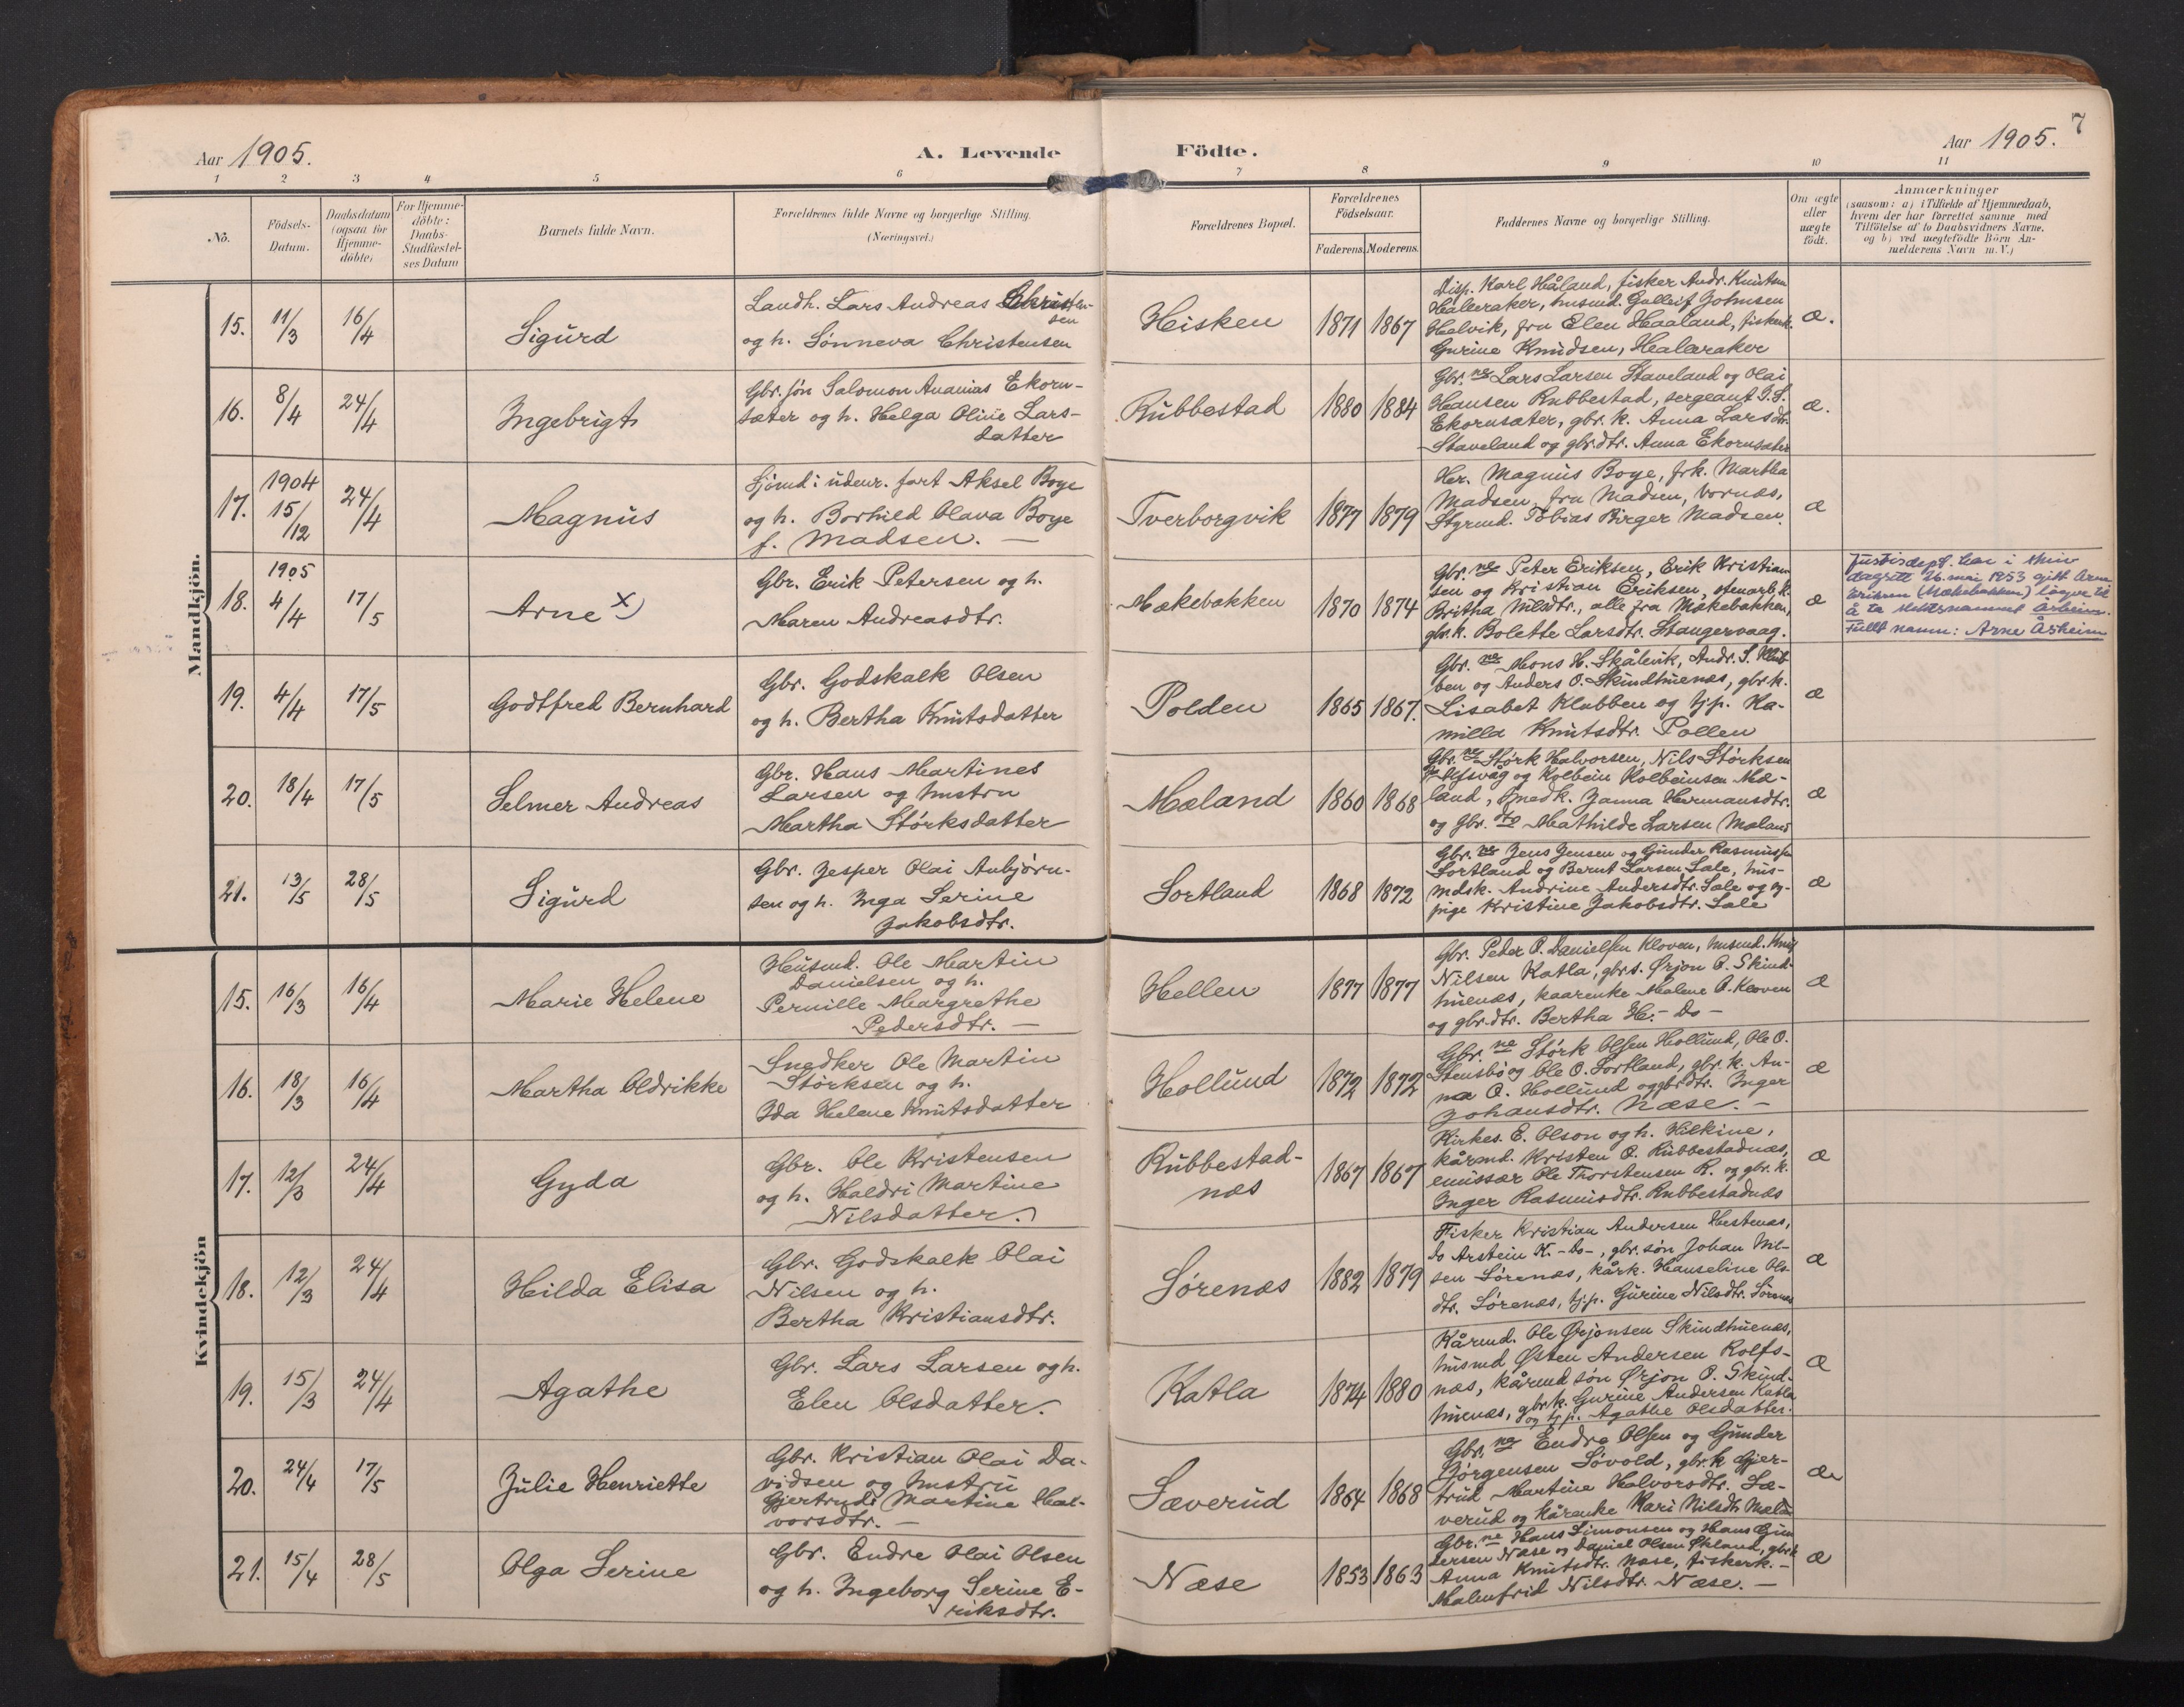 7
Aar 1905.
A. Levende Födte.
Aar 1905.
1 2 3 4 5 6 7 8 9 10 11
No.
Födsels-Datum.
Daabsdatum (ogsaa for Hjemme-döbte)
For Hjemme-döbte: Daabs-Stadfæstel-ses Datum
Barnets fulde Navn.
Forældrenes fulde Navne og borgerlige Stilling. (Næringsvei.)
Forældrenes Bopæl.
Forældrenes Födselsaar.
Faderens. Moderens.
Faddernes Navne og borgerlige Stilling.
Om ægte eller uægte födt.
Anmærkninger
(saasom: a) i Tilfælde af Hjemmedaab,
hvem der har forrettet samme, med
Tilföielse af to Daabsvidners Navne.
og b) ved uægtefödte Börn An-
melderens Navn m. V.)
Mandkjön.
15. 11/3 16/4 Sigurd
Landh. Lars Andreas Christen-
sen
og h. Sønneva Christensen
Heisken 1871 1867
Disp. Karl Håland, fisker Andr. Knutsen
Haleraker, husmd. Gulleif Johnsen
Helvik, fru Elen Haaland, fiskerk.
Gurine Knudsen, Healeraker
æ.
16. 8/4 24/4 Ingebrigt
Gbr. søn Salomon Ananias Ekorn-
sæter og h. Helga Oline Lars-
datter
Rubbestad 1880 1884
Gbr.ne Lars Larsen Staveland og Olai
Hansen Rubbestad, sergeant I. S.
Ekornsæter, gbr. k. Anna Larsdtr.
Staveland og gbr.dtr. Anna Ekornsæter
æ.
17. 1904 15/12 24/4 Magnus
Sjømd i udenr. fart Aksel Boye
og h. Borhild Olava Boye
f. Madsen. —
Tverborgvik 1877 1879
Hr. Magnus Boye, frk. Martha
Madsen, fru Madsen, Vornæs,
Styrmd. Tobias Birger Madsen.
æ
18. 1905 4/4 17/5 Arne x)
Gbr. Erik Petersen og h.
Maren Andreasdtr.
Mækebakken 1870 1874
Gbr.ne Peter Eriksen, Erik Kristian
sen og Kristian Eriksen, stenarb. k.
Britha Nilsdtr., alle fra Mækebakken,
gbr. k. Bolette Larsdtr. Stangervaag.
æ
Justisdept. har i skriv
dagsett 26. mai 1953 gitt Arne
Eriksen (Mækebakken) løyve til
å ta slektsnamnet Årheim.
Fullt namn: Arne Årheim
19. 4/4 17/5 Godtfred Bernhard
Gbr. Godskalk Olsen
og h. Bertha Knutsdatter
Polden 1865 1867.
Gbr.ne Mons H. Skålevik, Andr. S. Klub-
ben og Anders O. Skindhuenæs, gbr. k.
Lisabet Klubben og tj.p. Ka-
milla Knutsdtr. Pollen
æ
20. 18/4 17/5 Selmer Andreas
Gbr. Hans Martines
Larsen og hustru
Martha Størksdatter
Mæland 1860 1868
Gbr.ne Størk Halvorsen, Nils Størksen
Ulfsvåg og Kolbein Kolbeinsen Mæ-
land, smedk. Janna Hermansdtr.
og Gbr. Mathilde Larsen Mæland
æ
21. 13/5 28/5 Sigurd
Gbr. Jesper Olai Anbjørn-
sen og h. Inga Serine
Jakobsdtr.
Sortland 1868 1872
Gbr.ne Jens Jensen og Gunder Rasmussen
Sortland og Bernt Larsen Sale, hus-
mdsk. Andrine Andersdtr. Sale og
pige Kristine Jakobsdtr. Sale
æ
Kvindekjön
15. 16/3 16/4 Marie Helene
Husmd. Ole Martin
Danielsen og h.
Pernille Margrethe
Pedersdtr. —
Hellen 1877 1877
Gbr. Peder O. Danielsen Kloven, husmd. Knut
Nilsen Katla, gbr s. Ørjon O. Skind-
huenæs, kaarenke Malene O. Kloven
og gbr.dtr. Bertha H. - Do -
æ
16. 18/3 16/4 Martha Oldrikke
Snedker Ole Martin
Størksen og h.
Ida Helene Knutsdatter
Hollund 1872 1872
Gbr.ne Størk Olsen Hollund, Ole O.
Stensbø og Ole O. Sortland, gbr. k. An-
na O. Hollund og gbr.dtr. Inger
Johansdtr. Næse. —
æ
17. 12/3 24/4 Gyda
Gbr. Ole Kristensen
og h. Haldri Martine
Nilsdatter.
Rubbestad-
næs 1867 1867
Kirkes. E. Olson og h. Hilkine,
kårmd. Kristen O. Rubbestadnæs,
emissær Ole Thorstensen R. og gbr. k.
Inger Rasmusdtr. Rubbestadnæs
æ
18. 12/3 24/4 Hilda Elisa
Gbr. Godskalk Olai
Nilsen og h.
Bertha Kristiansdtr.
Sørenæs 1882 1879
Fisker Kristian Andersen Hestenæs,
Do Arstein K. - Do -, gbr. søn Johan Nil-
sen Sørenæs, kårk. Hanseline Ols-
dtr. Sørenæs, tj.p. Gurine Nilsdtr. Sørenæs
æ
19. 15/3 24/4 Agathe
Gbr. Lars Larsen og h.
Elen Olsdatter.
Katla 1874 1880
Kårmd. Ole Ørjonsen Skindhuenæs,
husmd Østen Andersen Rolfs-
næs, kårmd søn Ørjon O. Skind-
huenæs, gbr. k. Gurine Andersen Katla
og tj p. Agathe Olsdatter.
æ
20. 24/4 17/5 Julie Henriette
Gbr. Kristian Olai Da-
vidsen og hustru
Gjertrud Martine Hal-
vorsdtr. —
Sæverud 1864 1868
Gbr.ne Endre Olsen og Gunder
Jørgensen Løvold, gbr. k Gjer-
trud Martine Halvorsdtr. Sæ-
verud og kårenke Kari Nilsdtr Mælan
æ
21. 15/4 28/5 Olga Serine
Gbr. Endre Olai Olsen
og h. Ingeborg Serine E-
riksdtr.
Næse 1853 1863
Gbr.ne Hans Simonsen og Hans Gun
dersen Næse og Daniel Olsen Økland, gbr k
Anna Knutsdtr. Næse, fiskerk. -
Malenfrid Nilsdtr. Næse. —
æ